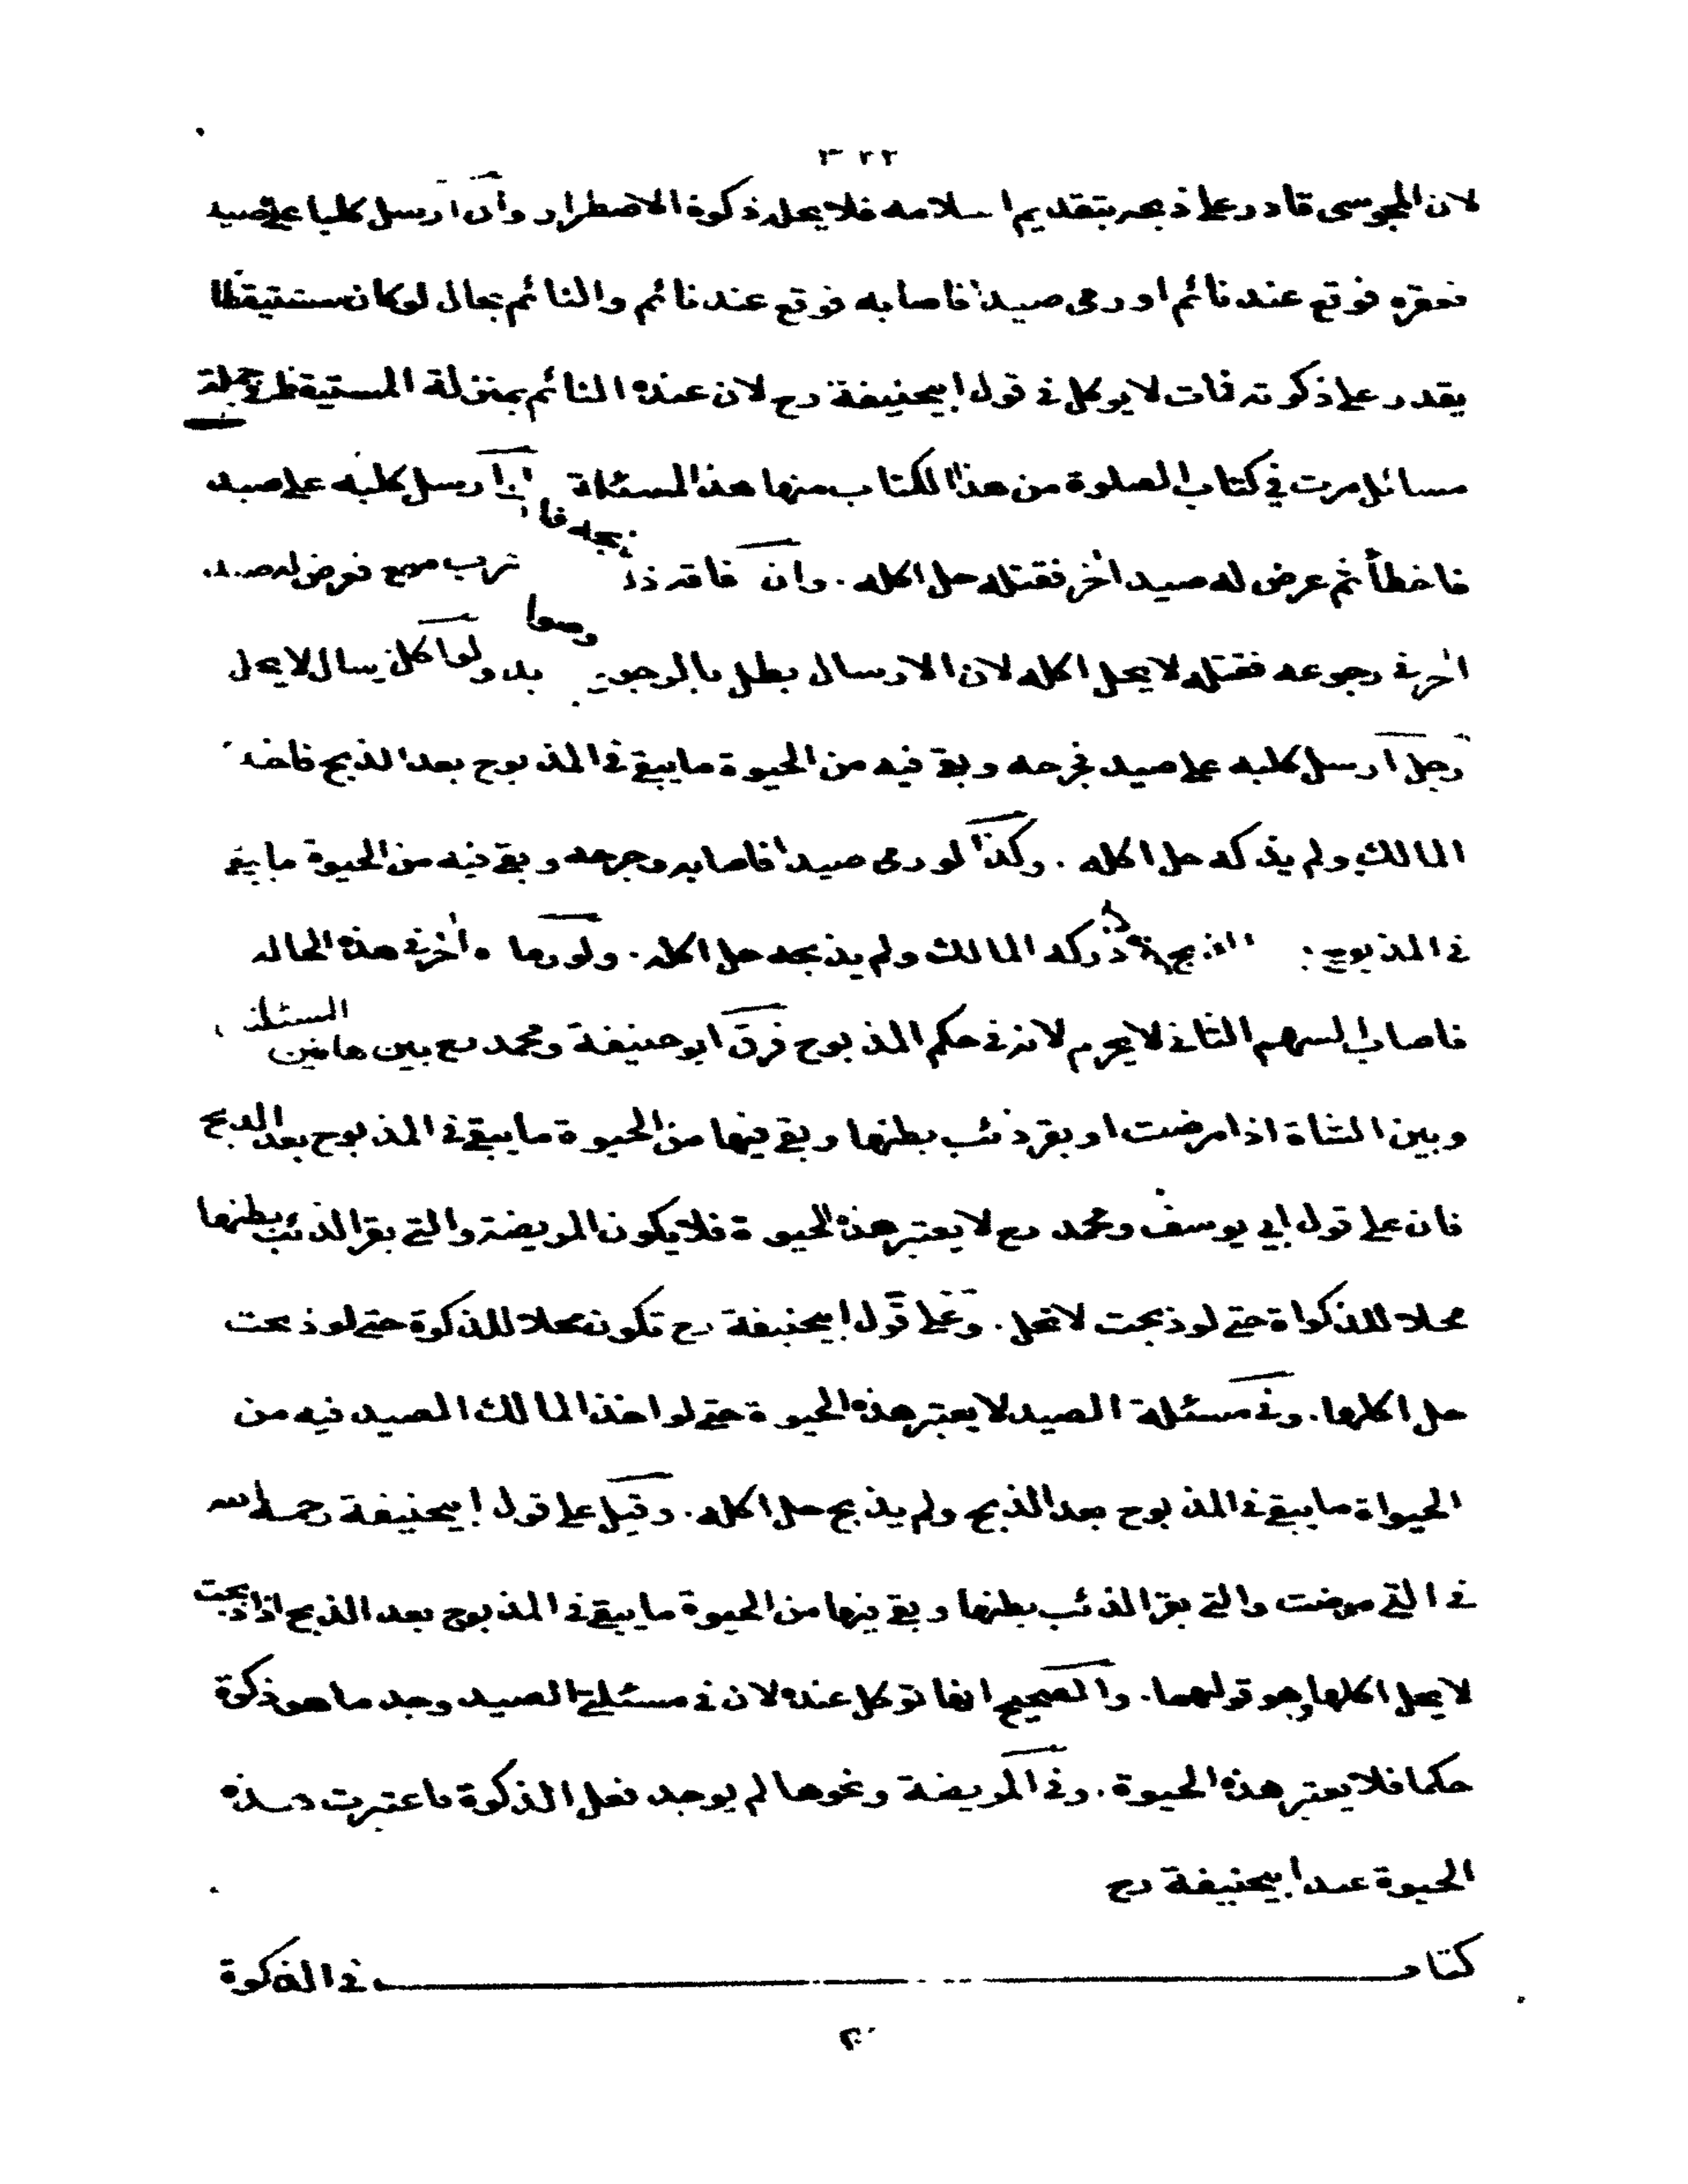 ٣٢٢
لان المجوسى قادر على ذبحه بتقديم اسلامه فلا يحله ذكوة الاضطرار وان ارسل كلبا على صيد
فعقره فوقع عند نائم او رمى صيدا فاصابه فوقع عند نائم والنائم بحال لو كان مستيقظا
يقدر على ذكوته فمات لا يوكل فى قول ابيحنيفة رح لان عنده النائم بمنزلة المستيقظ فى جملة
مسائل مرت في كتاب الصلوة من هذا الكتاب منها هذه المسئلة ارسل كلبه على صيد
فاخطأ ثم عرض له صيد اخر فقتله حل اكله . وان فاته فعرض له صيد
اخر فى رجوعه فقتله لا يحل اكله لان الارسال بطل بالرجوع ارسال لا يحل
رجل ارسل كلبه على صيد فجرحه وبقى فيه من الحيوة ما يبقى فى المذبوح بعد الذبح فاخذ
المالك ولم يذكه حل اكله . وكذا لو رمى صيدا فاصابه وجرحه وبقى فيه من الحيوة ما يبقى
فى المذبوح الذبح المالك ولم يذبحه حل اكله . ولو رماه اخر فى هذه الحاله
فاصاب السهم الثانى لا يحرم لانه فى حكم المذبوح فرق ابو حنيفة ومحمد رح بين هاتين المسئلة
وبين الشاة اذا مرضت او بقر ذئب بطنها وبقى فيها من الحيوة ما يبقى فى المذبوح بعد الذبح
فان على قول ابي يوسف ومحمد رح لا يعتبر هذه الحيوة فلا يكون المريضة والتى بقر الذئب بطنها
محلا للذكواة حتى لو ذبحت لا تحل . وعلى قول ابيحنيفة رح تكون محلا للذكوة حتى لو ذبحت
حل اكلها . وفى مسئلة الصيد لا يعتبر هذه الحيوة حتى لو اخذ المالك الصيد فيه من
الحيواة ما يبقى فى المذبوح بعد الذبح ولم يذبح حل اكله . وقيل على قول ابيحنيفة رحمه الله
فى التى مرضت والتى بقر الذئب بطنها وبقى فيها من الحيوة ما يبقى فى المذبوح بعد الذبح اذا ذبحت
لا يحل اكلها وهو قولهما . والصحيح انها توكل عنده لان فى مسئلة الصيد وجد ما هو ذكوة
حكما فلا يعتبر هذه الحيوة . وفى المريضة ونحوها لم يوجد فعل الذكوة فاعتبرت هذه
الحيوة عند ابيحنيفة رح
كتاب فى الذكوة